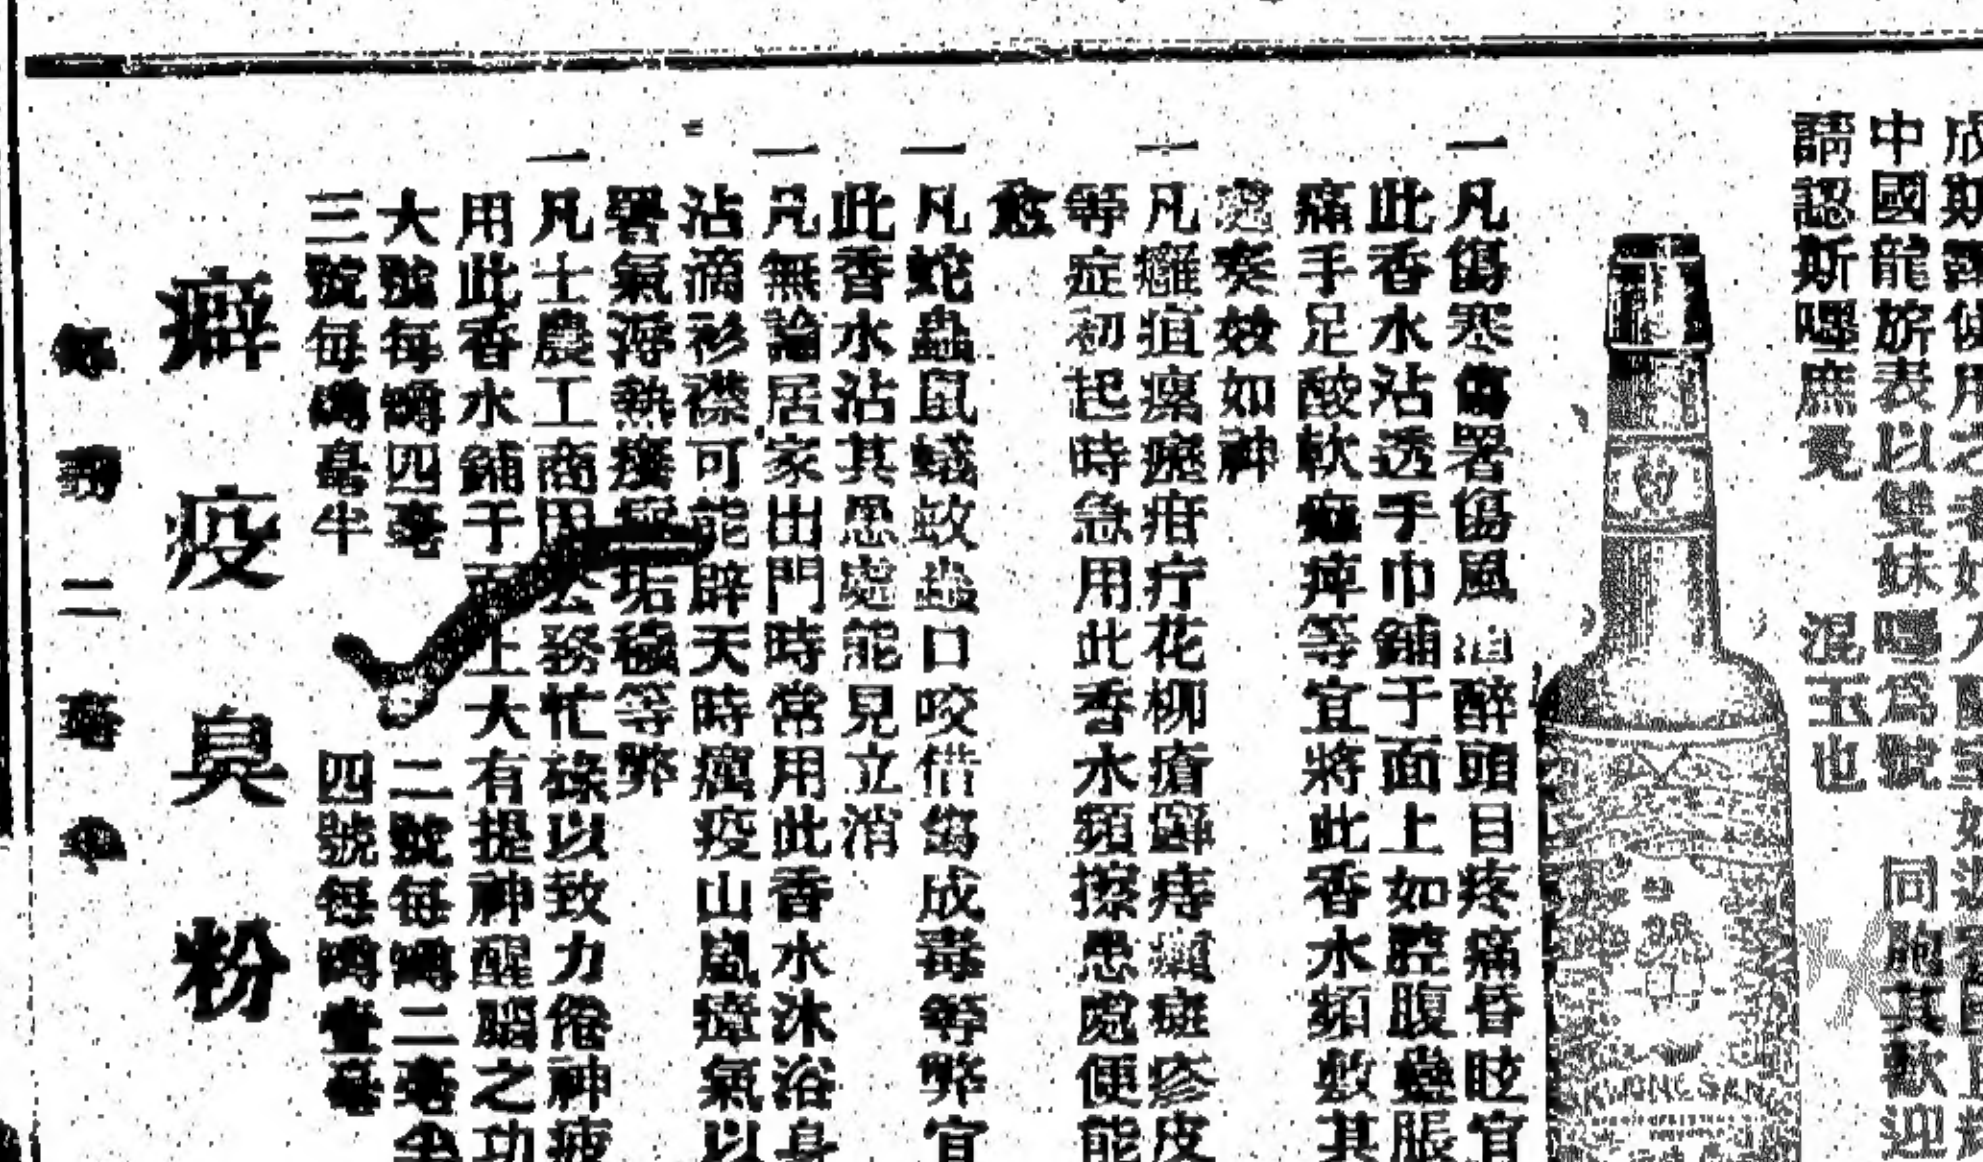 中國龍旂表以雙妹嘜爲號 同胞其歡迎
請認斯嘜庶免 混玉也
KWONG SANG
一凡傷寒傷暑傷風 醉頭目疼痛昏眩宜
此香水沾透手巾鋪于面上如腔腹 脹
痛手足酸軟 痺等宜將此香水頻敷其
處奏效如神
一凡癰疽瘰癧疳疔花柳瘡 痔 斑疹皮
等症初起時急用此香水頻擦患處便能
愈
一凡蛇蟲鼠蟻蚊 口咬借傷成毒等弊宜
此香水沾其患處能見立消
一凡無論居家出門時常用此香水沐浴身
沾滴衫襟可能辟天時癘疫山嵐瘴氣以
署氣 熱 垢穢等弊
一凡士農工商因 公務忙碌以致力倦神疲
用此香水鋪于面上大有提神醒腦之功
大號每嚹四毫 二號每嚹二毫半
三號每嚹毫半 四號每嚹壹毫
癖疫臭粉
每 二毫